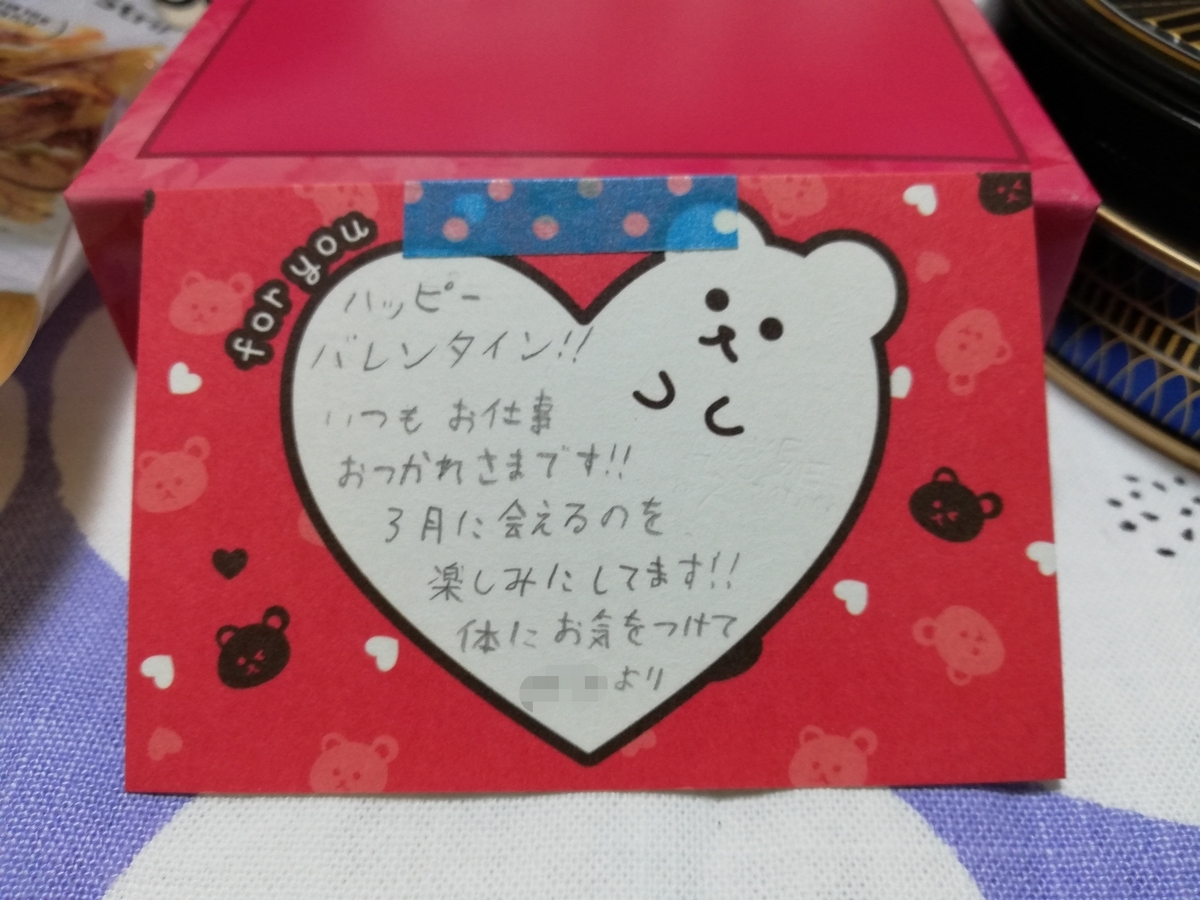 for you
ハッピー
バレンタイン!!
いつも お仕事
おつかれさまです!!
3月に会えるのを
楽しみにしてます!!
体にお気をつけて
より